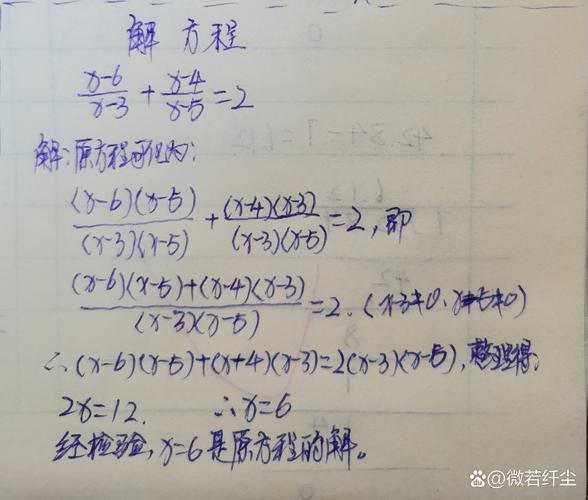 解方程
(x-6)/(x-3) + (x-4)/(x-5) = 2
解:原方程可化为:
(x-6)(x-5)/(x-3)(x-5) + (x-4)(x-3)/(x-3)(x-5) = 2, 即
(x-6)(x-5)+(x-4)(x-3)/(x-3)(x-5) = 2. (x-3≠0, x-5≠0)
∴(x-6)(x-5)+(x+4)(x-3)=2(x-3)(x-5), 整理得,
2x=12. ∴x=6
经检验, x=6是原方程的解。
@微若纤尘